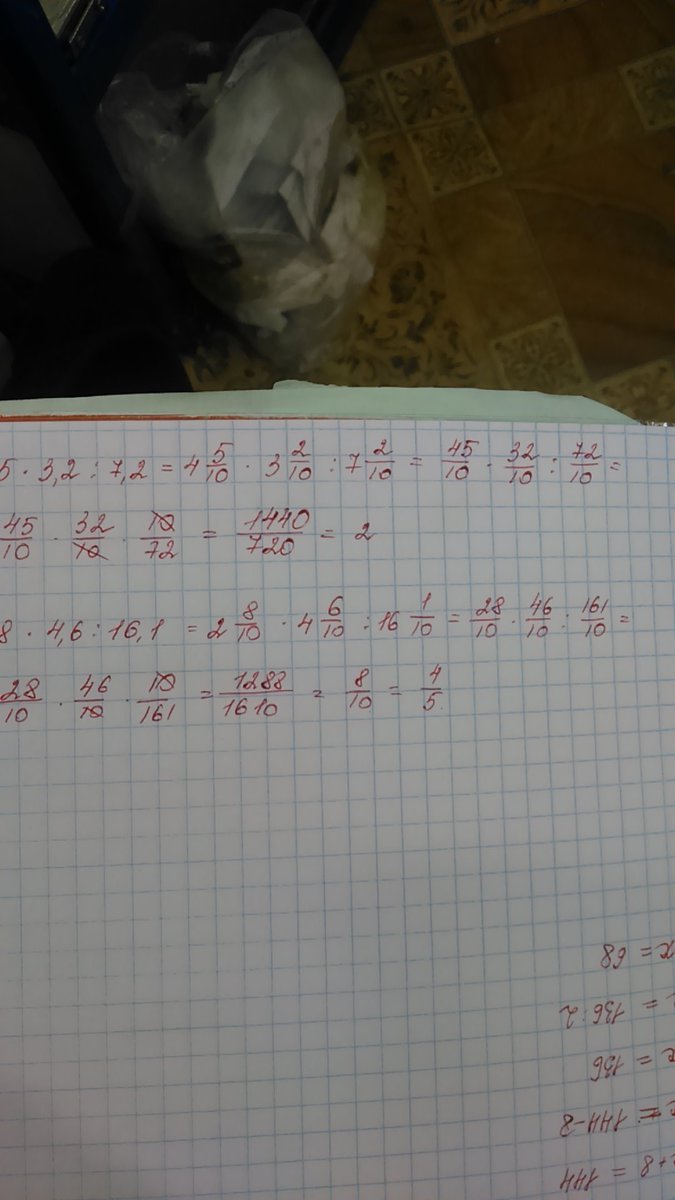 5 · 3,2 : 7,2 = 4 5/10 · 3 2/10 : 7 2/10 = 45/10 · 32/10 : 72/10 =
45/10 · 32/10 · 10/72 = 1440/720 = 2
8 · 4,6 : 16,1 = 2 8/10 · 4 6/10 : 16 1/10 = 28/10 · 46/10 : 161/10 =
28/10 · 46/10 · 10/161 = 1288/1610 = 8/10 = 4/5.
+8 = 144
= 144-8
x = 136
= 136:2
x = 68